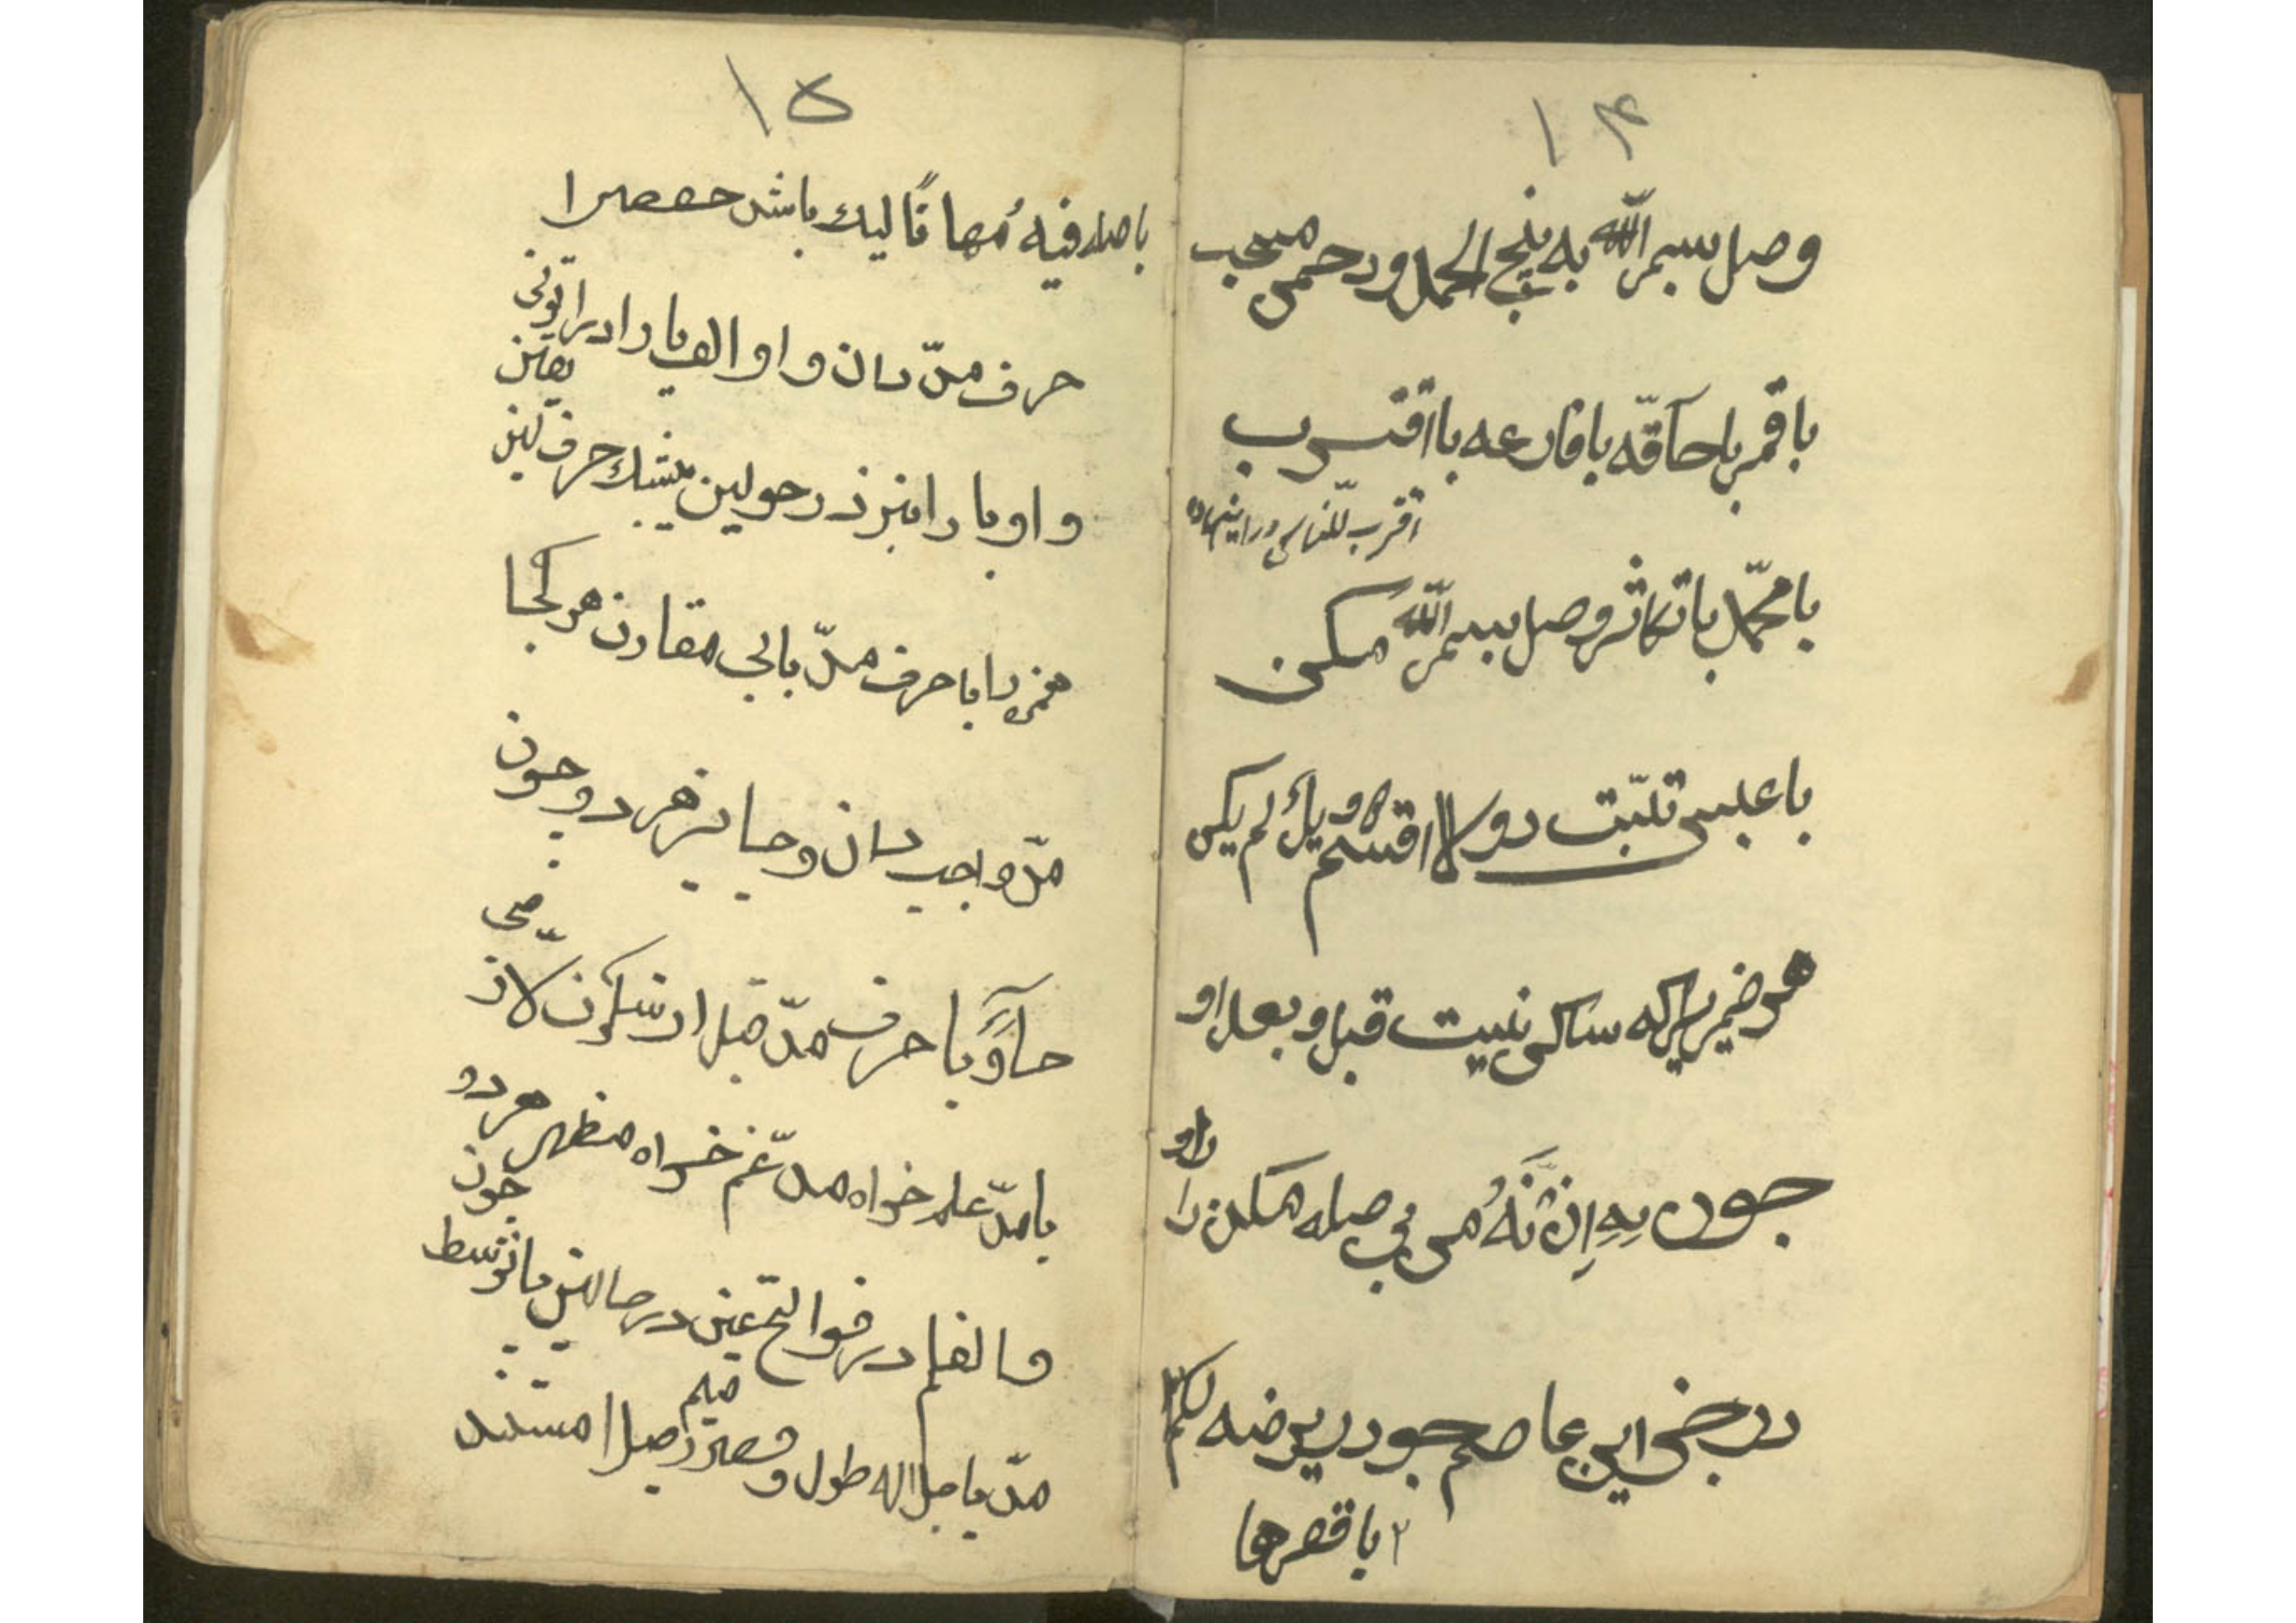 ۱۴
وصل بسم الله به پنج الحمد و رحمن مستحب
با قمر با حآقّه با قارعه با اقترب
اقترب للناس در انبیاء
با محمّد با تکاثر وصل بسم الله مکن
با عبس تبّت دو لا اقسم دو ویلٌ لم یکن
هر ضمیری که ساکن نیست قبل و بعد او
چون بِهِ اِنَّهُ می بی صله مکن ادا
در رضی این عاصم چو در یرضه لکم
۲ با قصرها
۱۵
با صله فیه مُهانًا لیک باشد حفص را
حرف مدّ دان واو الف یا را در اتونی
یقین
واو یا را نیز در حو لین بیشک حرف لین
همزه را با حرف مدّ یابی مقارن هر کجا
مدّ واجب دان و جایز هر دو چون
حآوّیا حرف مدّ قبل از سکون لازمی
با مدّ علم خواه مدّغم خواه مظهر هر دو
چون
والقلم در فواتح عین در حالین یا توسط
میم
مدّ یا جلاله طول و قصر وصلا مستند